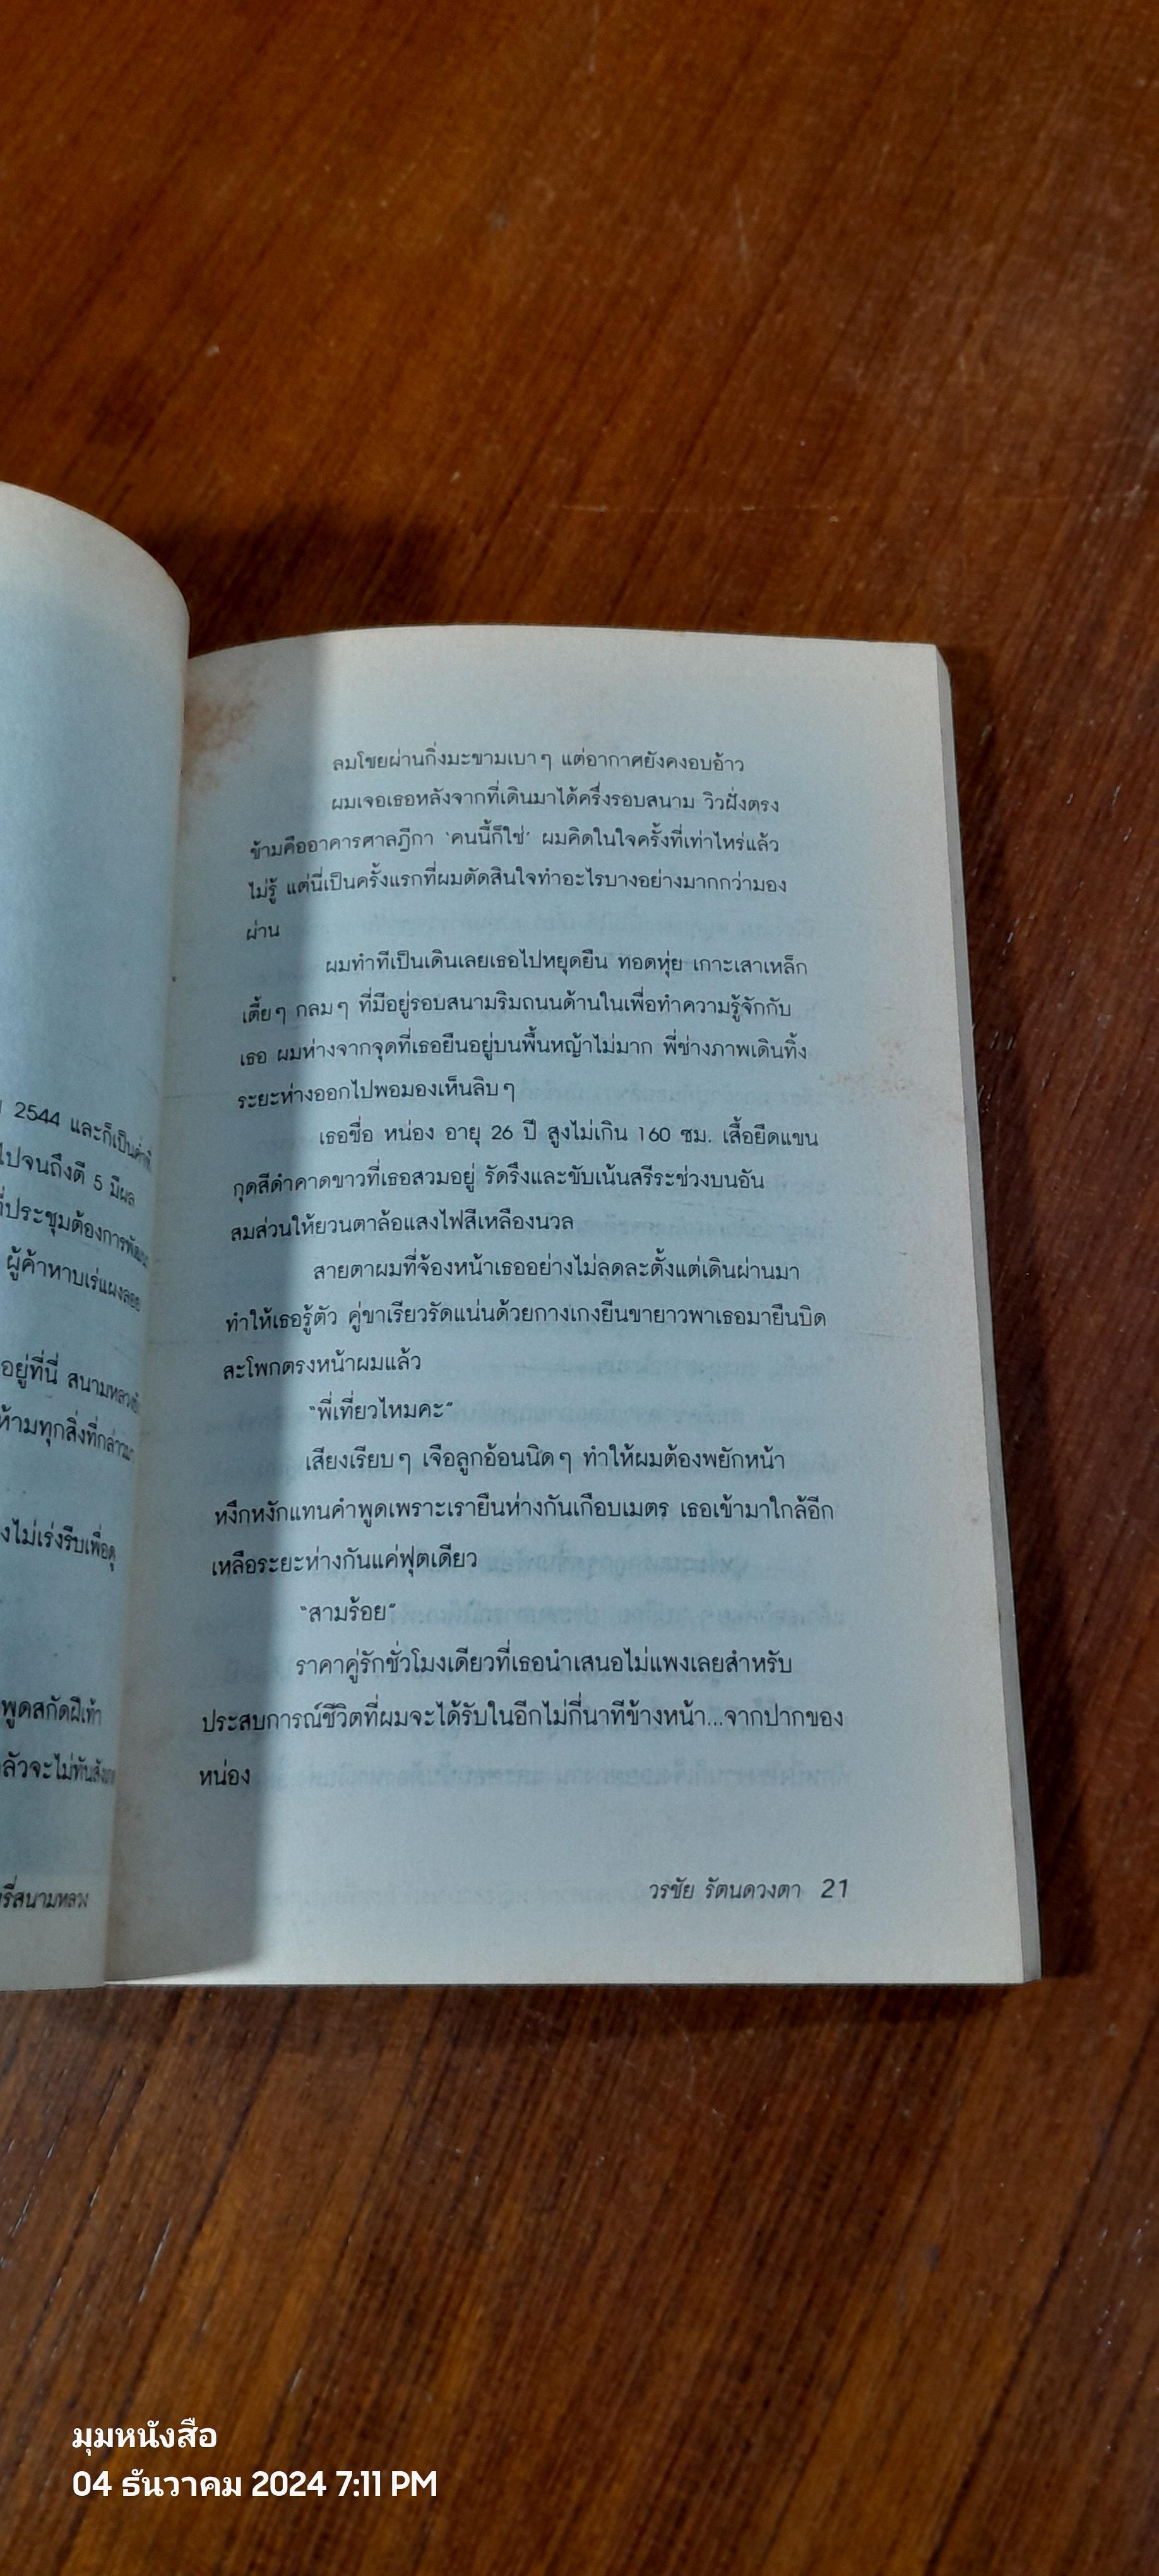 2544 และก็เป็น
ไปจนถึงตี 5 มีผล
ที่ประชุมต้องการพัฒนา
ผู้ค้าหาบเร่แผงลอย
อยู่ที่นี่ สนามหลวง
ห้ามทุกสิ่งที่กล่าวมา
ไม่เร่งรีบเพื่อ
พูดสกัดฝีเท้า
จะไม่ทัน
สนามหลวง
ลมโชยผ่านกิ่งมะขามเบาๆ แต่อากาศยังคงอบอ้าว
ผมเจอเธอหลังจากที่เดินมาได้ครึ่งรอบสนาม วิวฝั่งตรง
ข้ามคืออาคารศาลฎีกา ‘คนนี้ก็ใช่’ ผมคิดในใจครั้งที่เท่าไหร่แล้ว
ไม่รู้ แต่นี่เป็นครั้งแรกที่ผมตัดสินใจทำอะไรบางอย่างมากกว่ามอง
ผ่าน
ผมทำทีเป็นเดินเลยเธอไปหยุดยืน ทอดหุ่ย เกาะเสาเหล็ก
เตี้ยๆ กลมๆ ที่มีอยู่รอบสนามริมถนนด้านในเพื่อทำความรู้จักกับ
เธอ ผมห่างจากจุดที่เธอยืนอยู่บนพื้นหญ้าไม่มาก พี่ช่างภาพเดินทิ้ง
ระยะห่างออกไปพอมองเห็นลิบๆ
เธอชื่อ หน่อง อายุ 26 ปี สูงไม่เกิน 160 ซม. เสื้อยืดแขน
กุดสีดำคาดขาวที่เธอสวมอยู่ รัดรึงและขับเน้นสรีระช่วงบนอัน
สมส่วนให้ยวนตาล้อแสงไฟสีเหลืองนวล
สายตาผมที่จ้องหน้าเธออย่างไม่ลดละตั้งแต่เดินผ่านมา
ทำให้เธอรู้ตัว คู่ขาเรียวรัดแน่นด้วยกางเกงยีนขายาวพาเธอมายืนบิด
สะโพกตรงหน้าผมแล้ว
“พี่เที่ยวไหมคะ”
เสียงเรียบๆ เจือลูกอ้อนนิดๆ ทำให้ผมต้องพยักหน้า
หงึกหงักแทนคำพูดเพราะเรายืนห่างกันเกือบเมตร เธอเข้ามาใกล้อีก
เหลือระยะห่างกันแค่ฟุตเดียว
“สามร้อย”
ราคาคู่รักชั่วโมงเดียวที่เธอนำเสนอไม่แพงเลยสำหรับ
ประสบการณ์ชีวิตที่ผมจะได้รับในอีกไม่กี่นาทีข้างหน้า...จากปากของ
หน่อง
วรชัย รัตนดวงตา 21
มุมหนังสือ
04 ธันวาคม 2024 7:11 PM